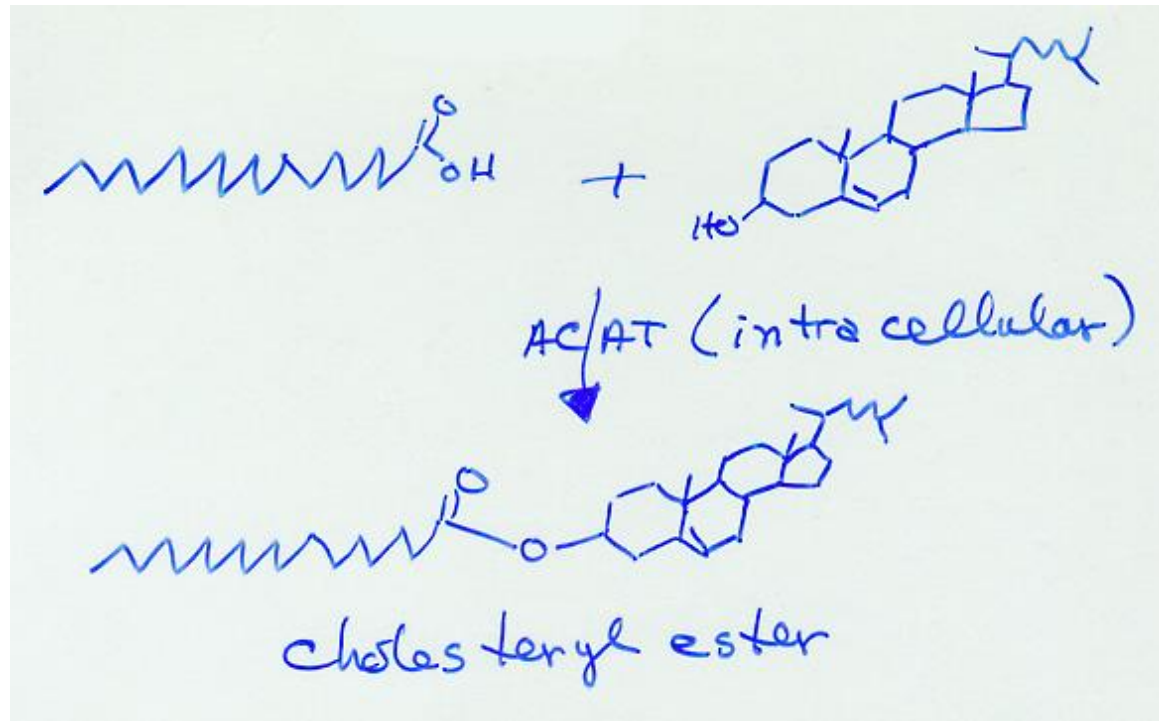 O
OH
+
HO
ACAT (intracellular)
O
O
cholesteryl ester